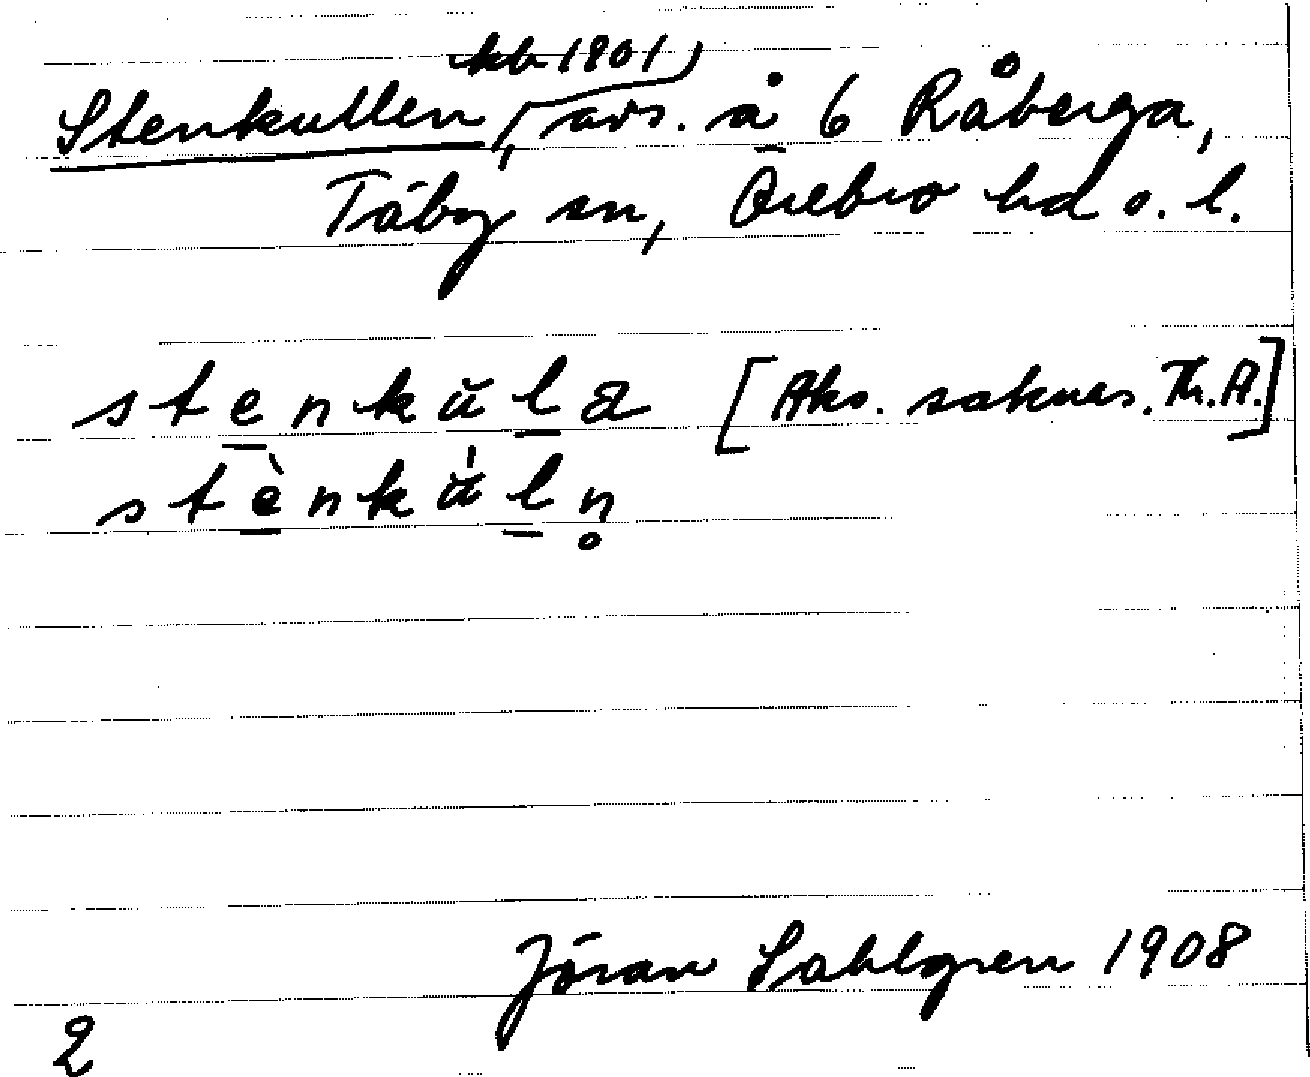 kb 1901)
Stenkullen, avs. å 6 Råberga,
Täby sn, Örebro hd o. l.
stenkŭla [Aks. saknas. Th. A.]
stènkŭ̍ln̥
Jöran Sahlgren 1908
2